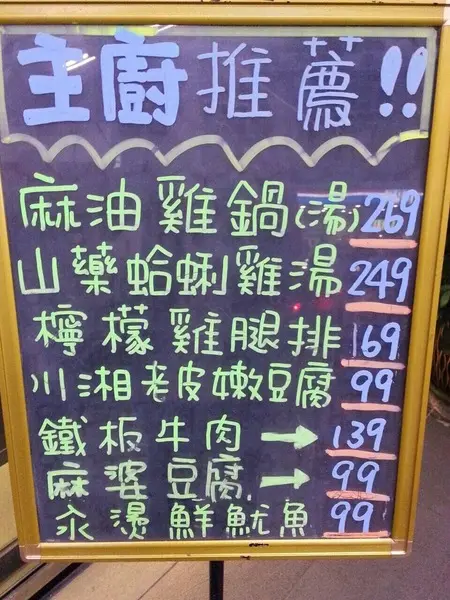 主廚推薦!!
麻油雞鍋(湯)269
山藥蛤蜊雞湯249
檸檬雞腿排169
川湘老皮嫩豆腐99
鐵板牛肉→139
麻婆豆腐→99
永燙鮮魷魚99